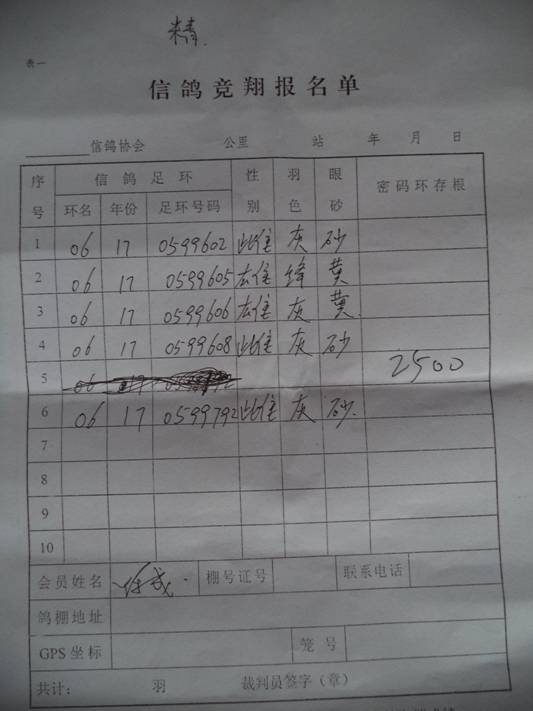 精.
表一
信鸽竞翔报名单
信鸽协会 公里 站 年 月 日
序号 信鸽足环 性别 羽色 眼砂 密码环存根
环名 年份 足环号码
1 06 17 0599602 灰 砂
2 06 17 0599605 绛 黄
3 06 17 0599606 灰 黄
4 06 17 0599608 灰 砂
5 2500
6 06 17 0599792 灰 砂.
7
8
9
10
会员姓名 棚号证号 联系电话
鸽棚地址
GPS 坐标 笼号
共计: 羽 裁判员签字(章)